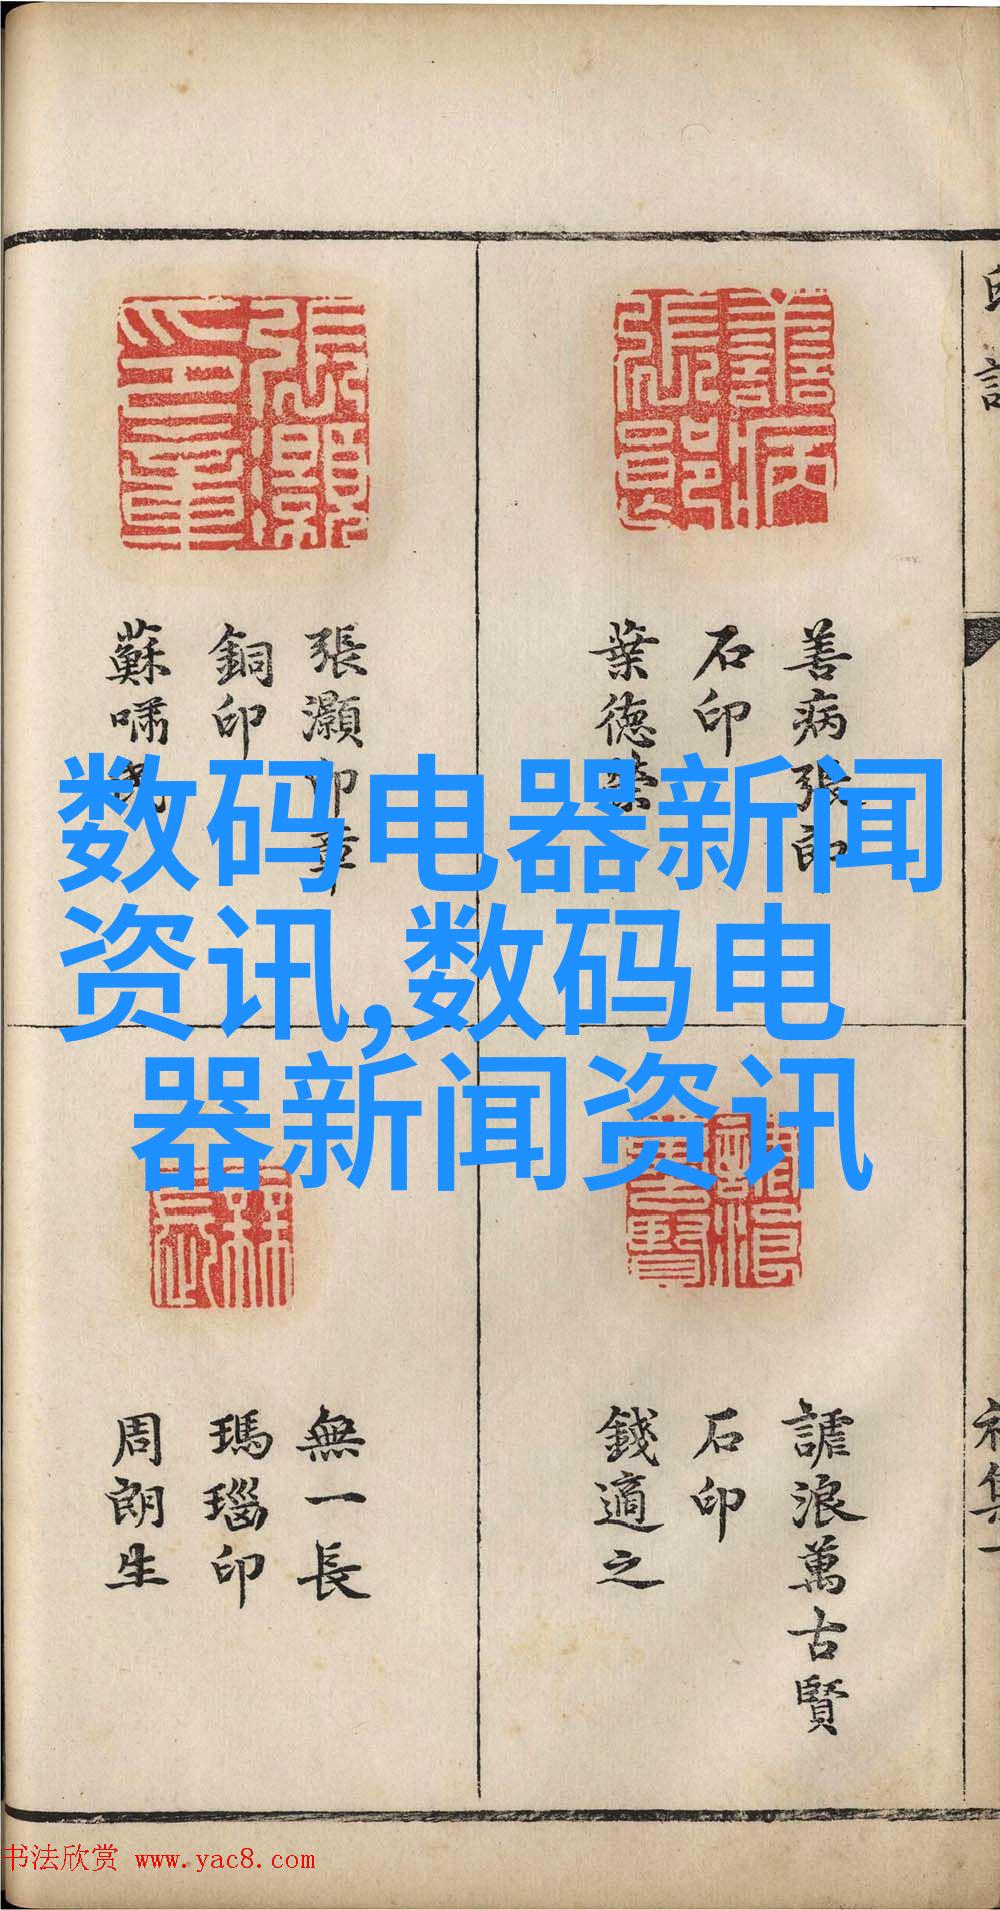 数码电器新闻
资讯,数码电
器新闻资讯
善病張郎
石印
葉德榮
張灝印章
銅印
蘇嘯民
謔浪萬古賢
石印
錢適之
無一長
瑪瑙印
周朗生
初集一
书法欣赏 www.yac8.com